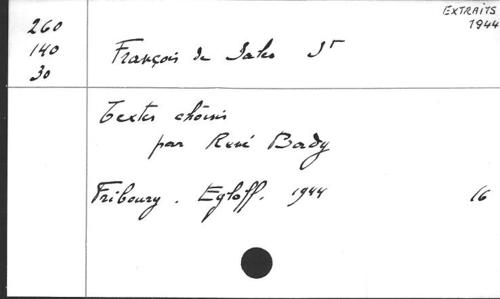 EXTRAITS
1944
260
140
30
François de Sales St
Textes choisis
par René Bady
Fribourg. Egloff. 1944 16